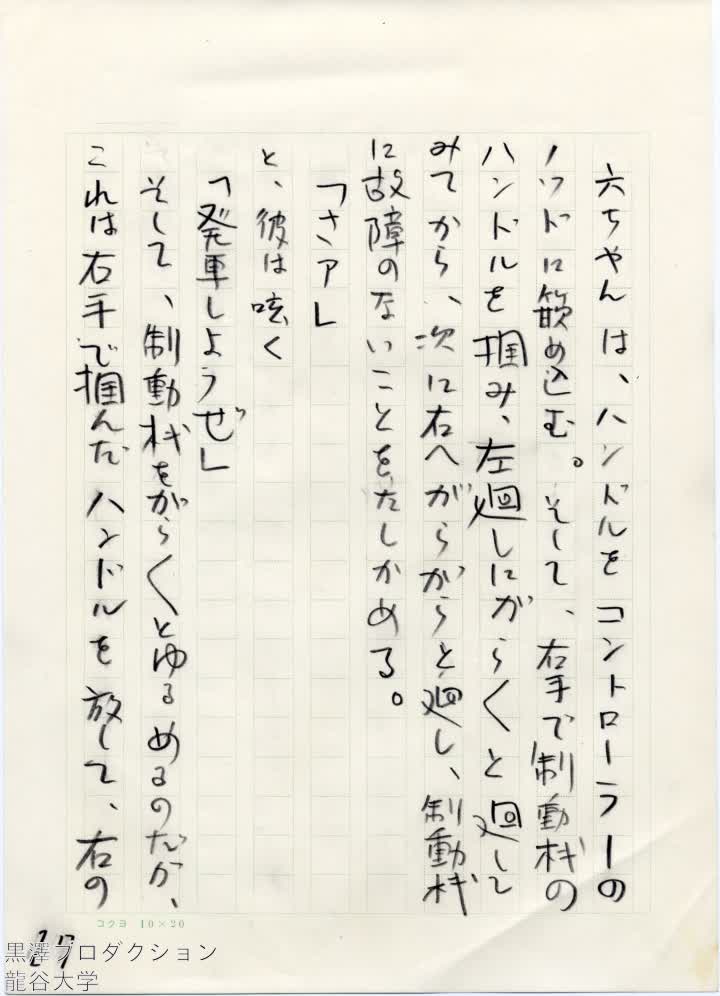 六ちゃんは、ハンドルをコントローラーの
ノッドに嵌め込む。そして、右手で制動機の
ハンドルを掴み、左廻しにがら〱と廻して
みてから、次に右へがらがらと廻し、制動機
に故障のないことをたしかめる。
「さア」
と、彼は呟く
「発車しようぜ」
そして、制動機をがら〱とゆるめるのだが、
これは右手で掴んだハンドルを放して、右の
コクヨ 10×20
27
黒澤プロダクション
龍谷大学